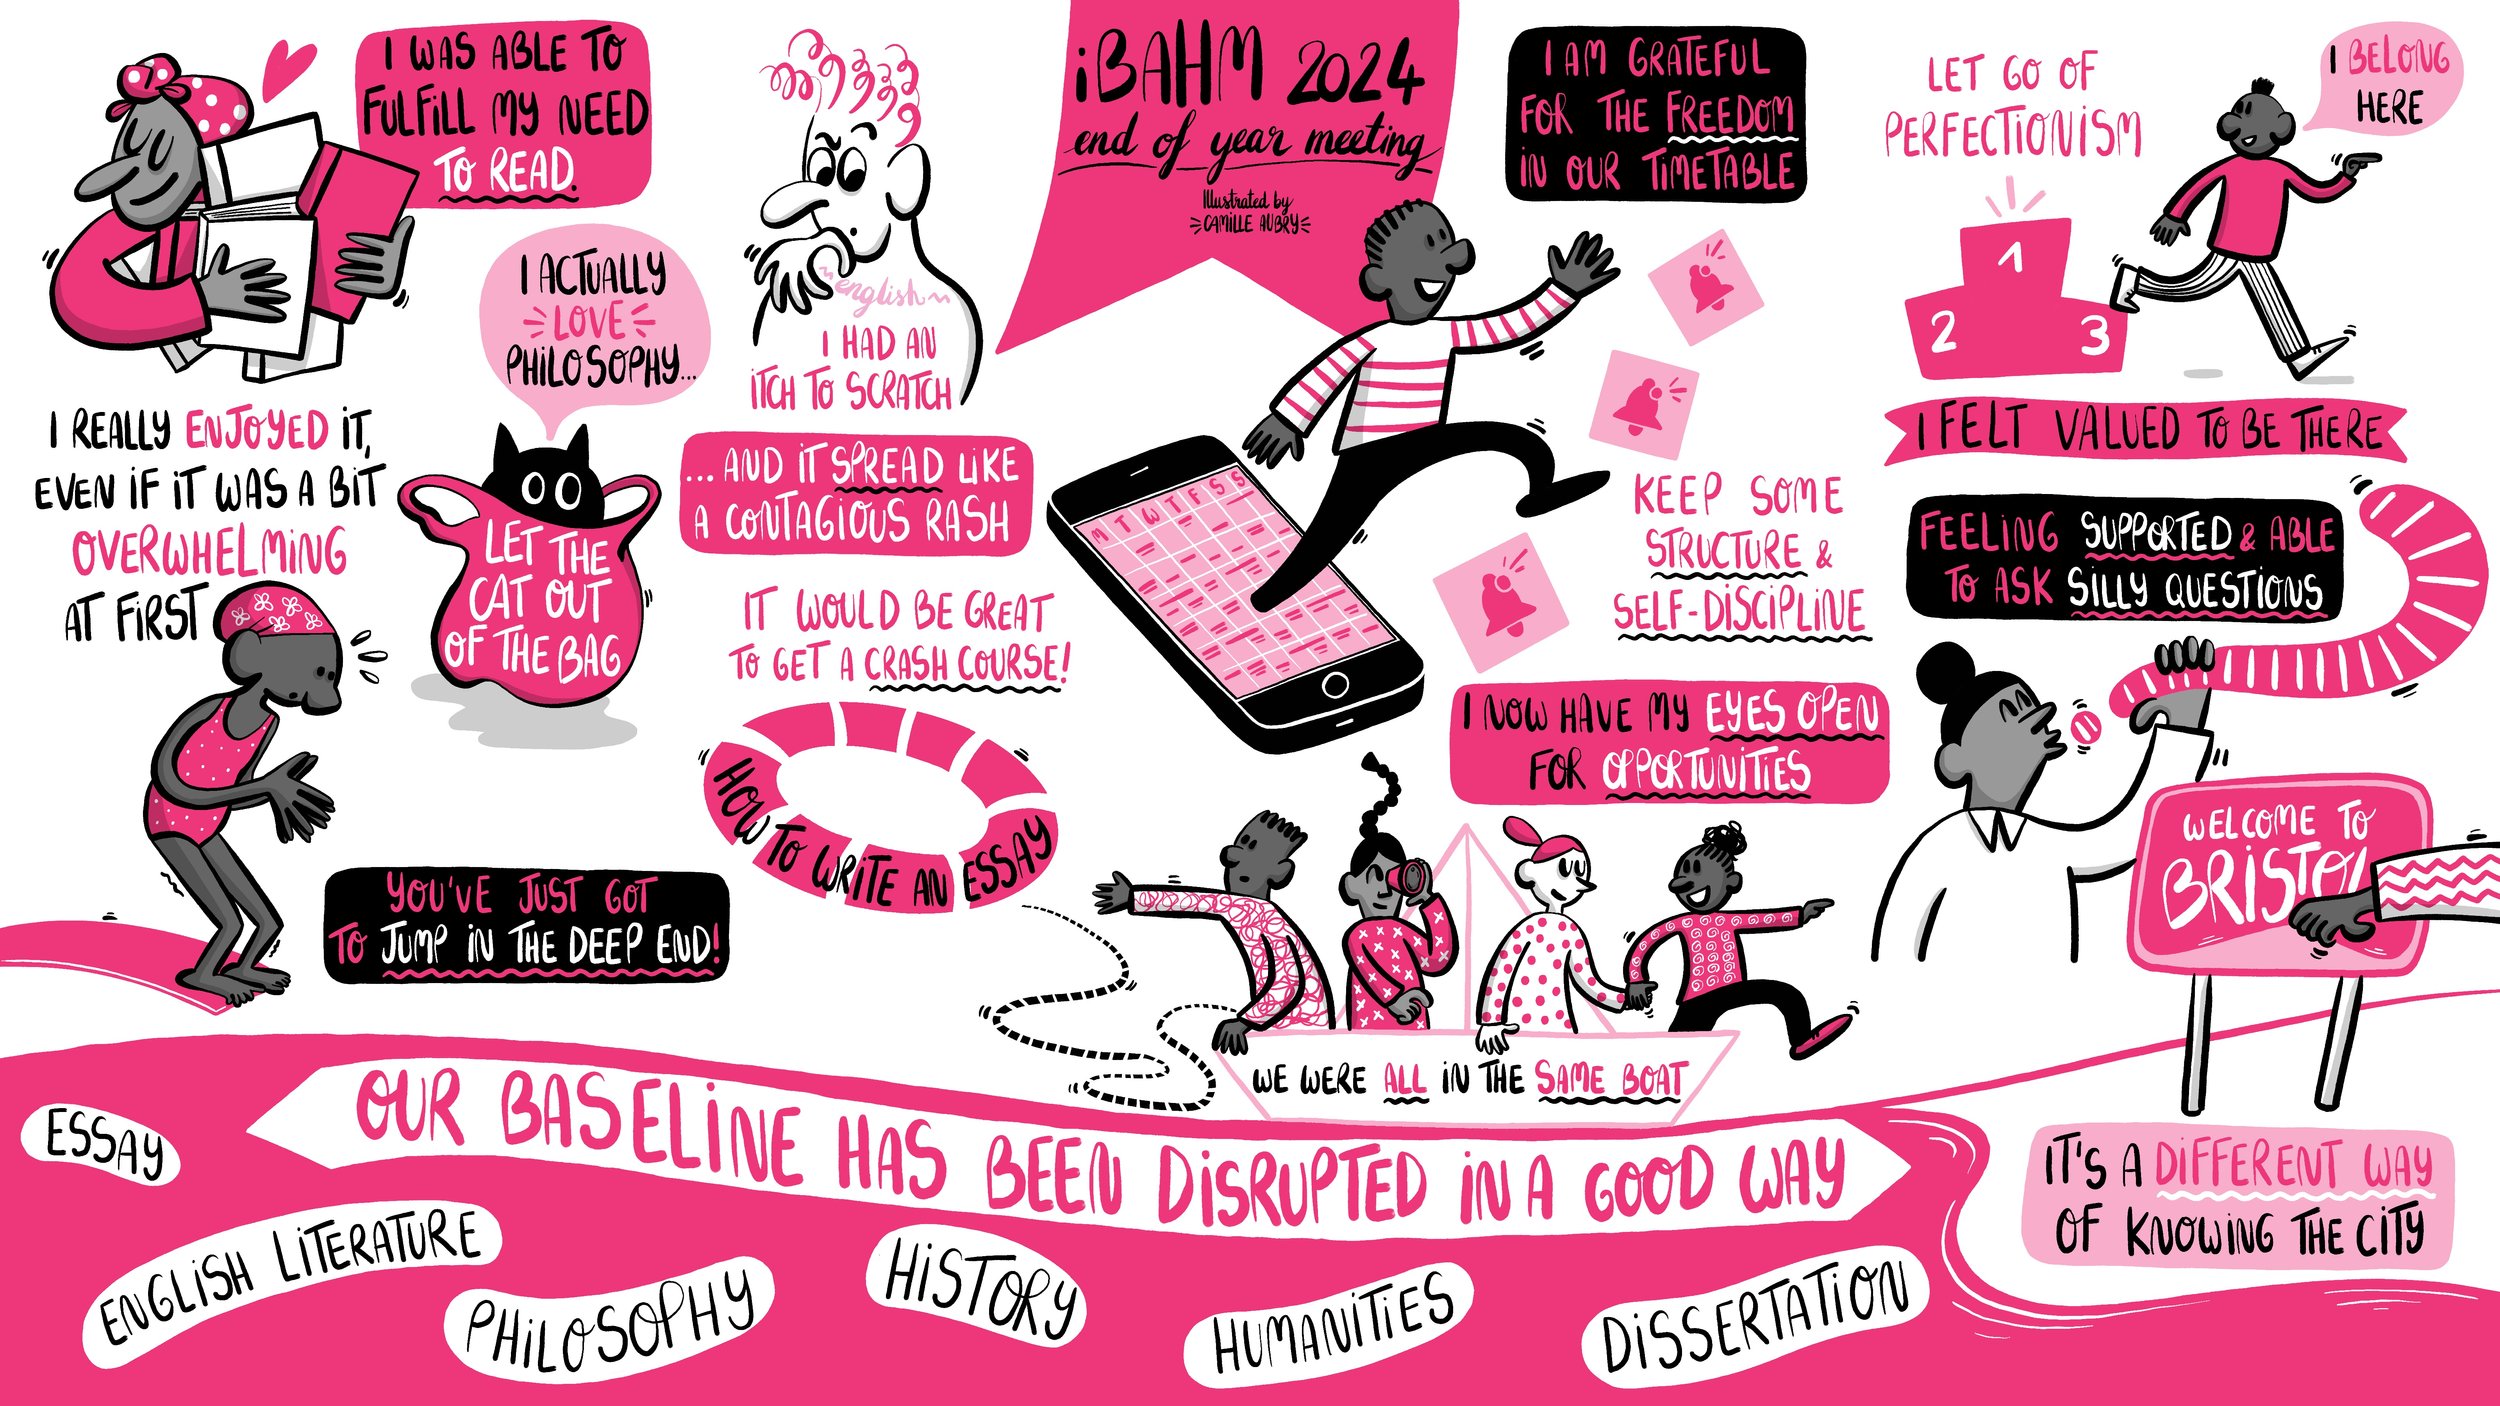 iBAHM 2024
end of year meeting
Illustrated by
CAMILLE AUBRY
I WAS ABLE TO
FULFILL MY NEED
TO READ.
I ACTUALLY
LOVE
PHILOSOPHY...
LET THE
CAT OUT
OF THE BAG
I REALLY ENJOYED IT,
EVEN IF IT WAS A BIT
OVERWHELMING
AT FIRST
YOU'VE JUST GOT
TO JUMP IN THE DEEP END!
english
I HAD AN
ITCH TO SCRATCH
... AND IT SPREAD LIKE
A CONTAGIOUS RASH
IT WOULD BE GREAT
TO GET A CRASH COURSE!
HOW TO WRITE AN ESSAY
I AM GRATEFUL
FOR THE FREEDOM
IN OUR TIMETABLE
M T W T F S S
KEEP SOME
STRUCTURE &
SELF-DISCIPLINE
I NOW HAVE MY EYES OPEN
FOR OPPORTUNITIES
WE WERE ALL IN THE SAME BOAT
LET GO OF
PERFECTIONISM
I BELONG
HERE
1
2
3
I FELT VALUED TO BE THERE
FEELING SUPPORTED & ABLE
TO ASK SILLY QUESTIONS
WELCOME TO
BRISTOL
IT'S A DIFFERENT WAY
OF KNOWING THE CITY
OUR BASELINE HAS BEEN DISRUPTED IN A GOOD WAY
ESSAY
ENGLISH LITERATURE
PHILOSOPHY
HISTORY
HUMANITIES
DISSERTATION